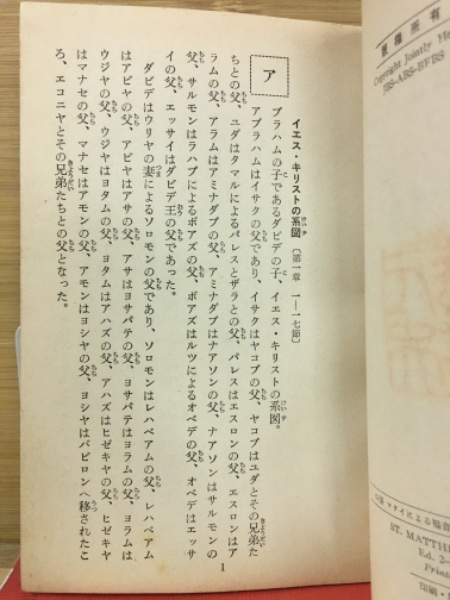 版権所有
Copyright Jointly He
JBS-ABS-BFBS
イエス・キリストの系図〔第一章 一―一七節〕
ア
ブラハムの子であるダビデの子、イエス・キリストの系図。
アブラハムはイサクの父であり、イサクはヤコブの父、ヤコブはユダとその兄弟た
ちとの父、ユダはタマルによるパレスとザラとの父、パレスはエスロンの父、エスロンはア
ラムの父、アラムはアミナダブの父、アミナダブはナアソンの父、ナアソンはサルモンの
父、サルモンはラハブによるボアズの父、ボアズはルツによるオベデの父、オベデはエッサ
イの父、エッサイはダビデ王の父であった。
ダビデはウリヤの妻によるソロモンの父であり、ソロモンはレハベアムの父、レハベアム
はアビヤの父、アビヤはアサの父、アサはヨサパテの父、ヨサパテはヨラムの父、ヨラムは
ウジヤの父、ウジヤはヨタムの父、ヨタムはアハズの父、アハズはヒゼキヤの父、ヒゼキヤ
はマナセの父、マナセはアモンの父、アモンはヨシヤの父、ヨシヤはバビロンへ移されたこ
ろ、エコニヤとその兄弟たちとの父となった。
1
マタイによる福音
ST. MATTHE
Ed. 2–
Printe
印刷・